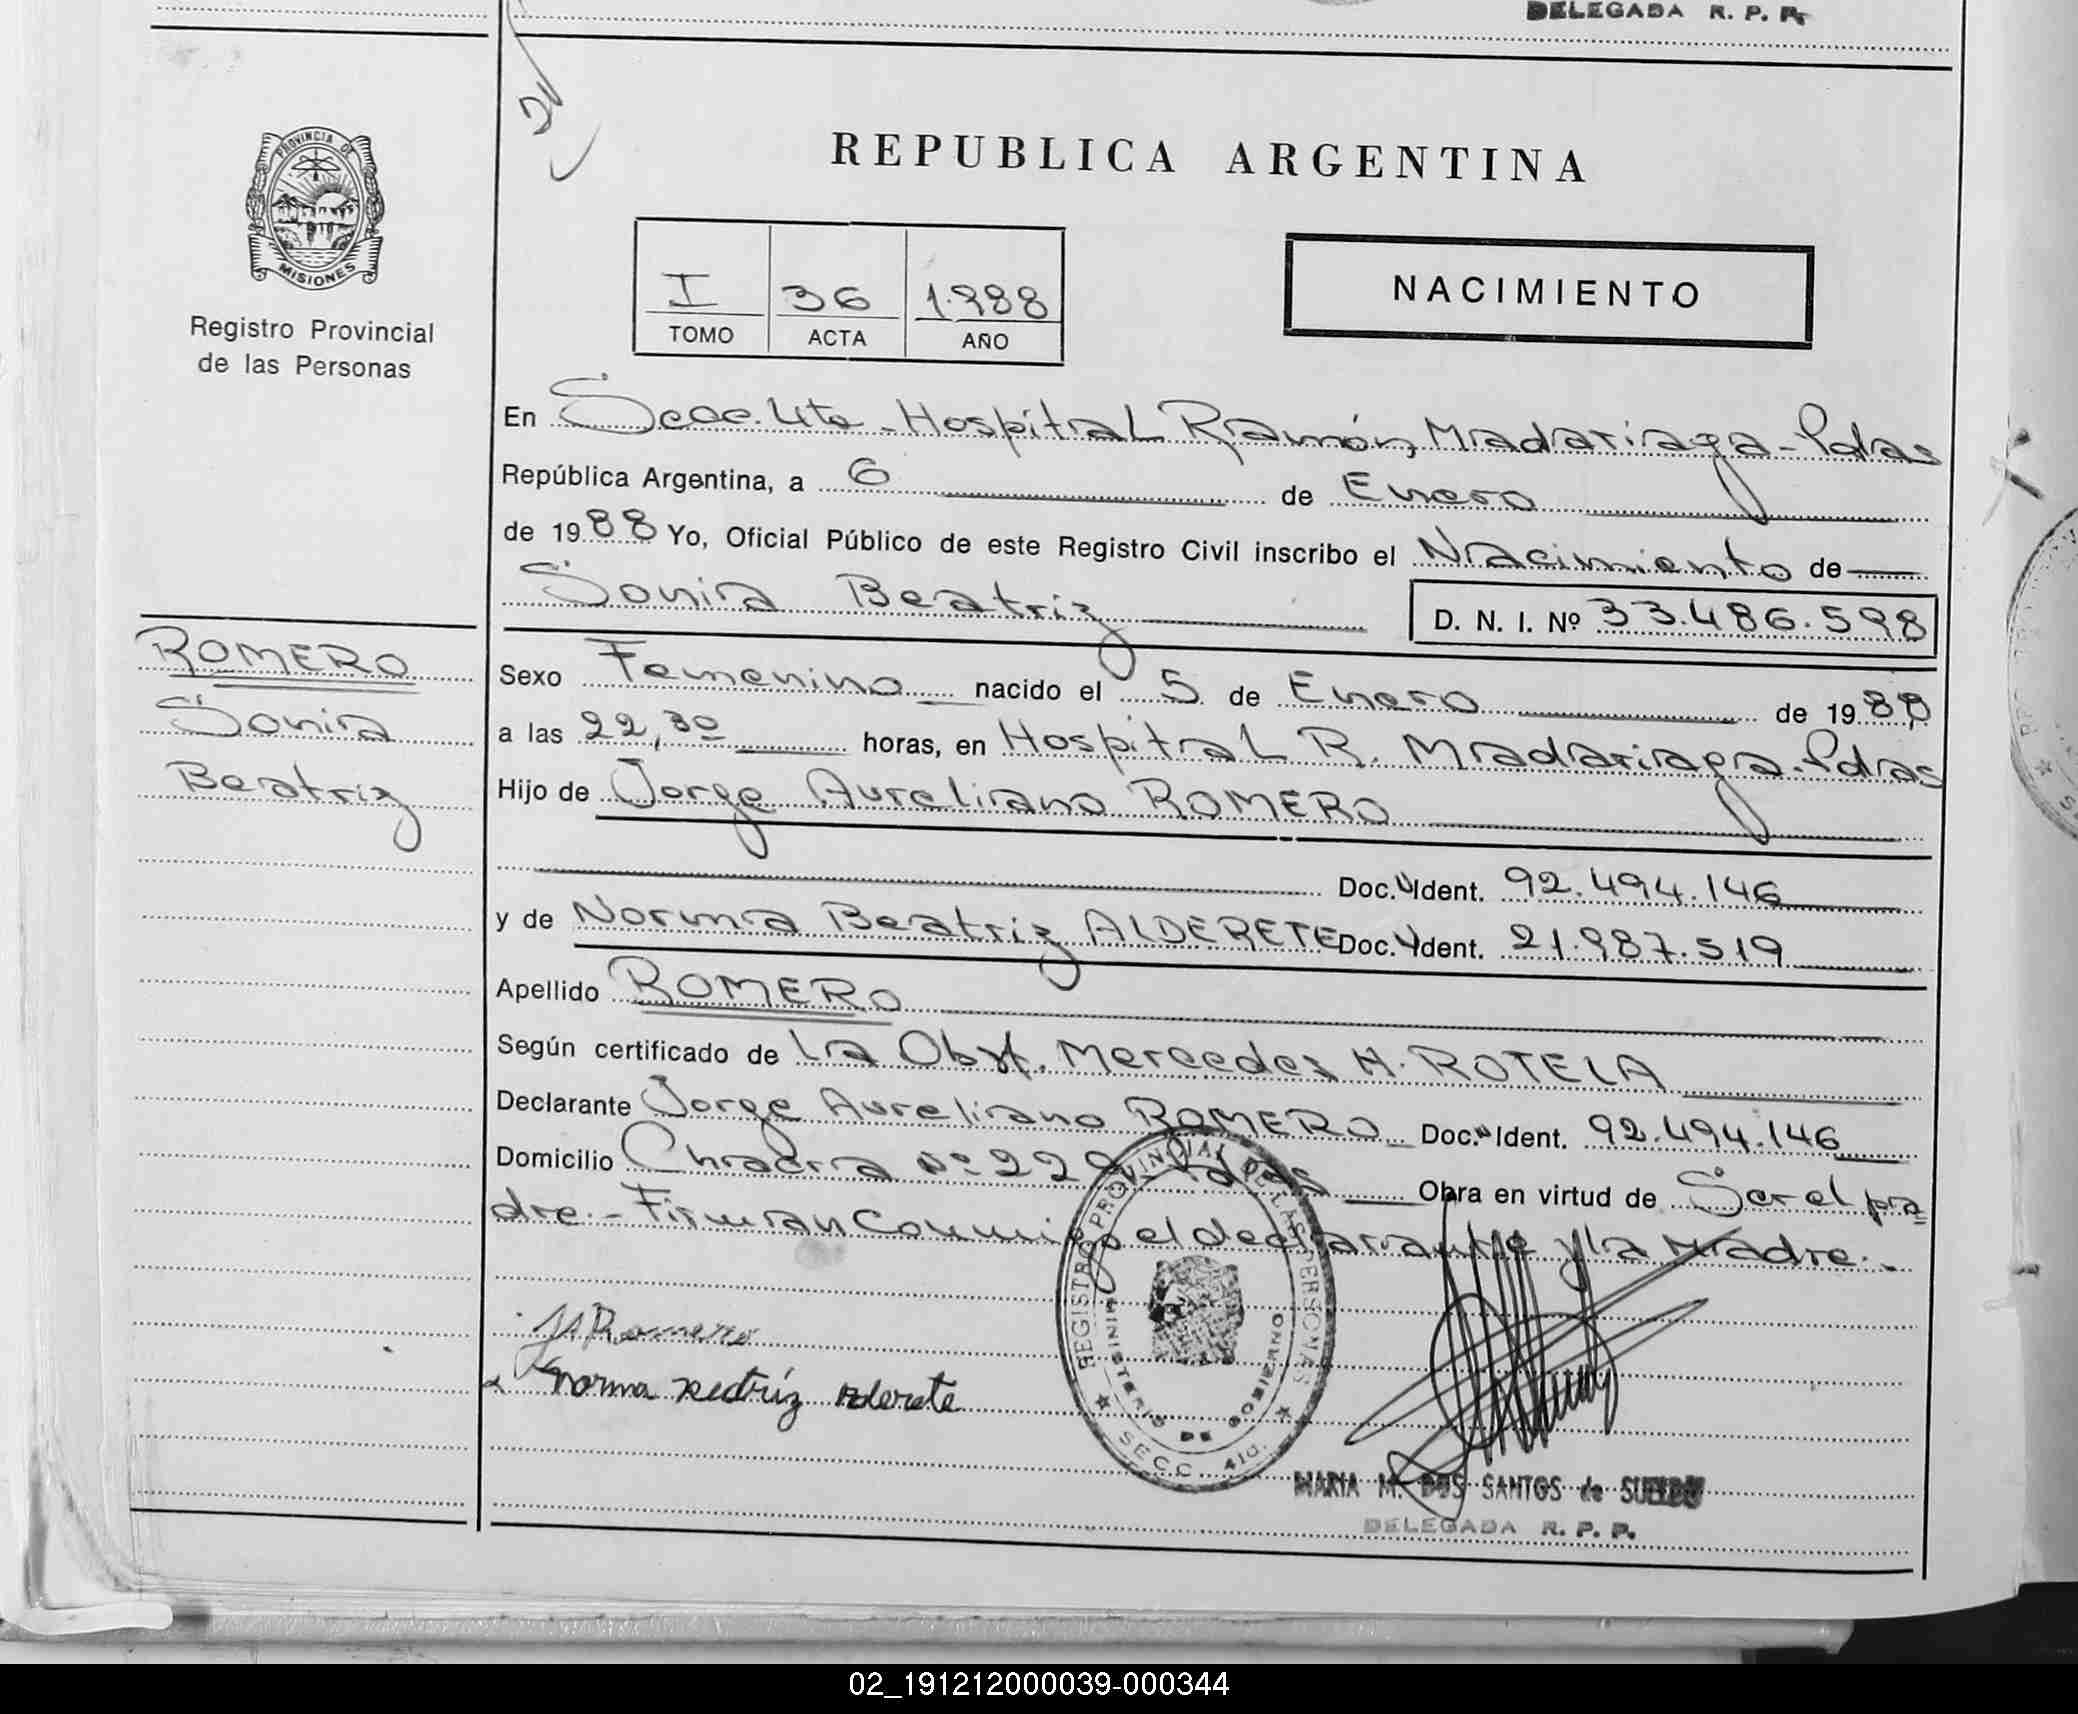 DELEGADA R. P. P.
PROVINCIA DE
MISIONES
Registro Provincial
de las Personas
REPUBLICA ARGENTINA
I 36 1.988
TOMO ACTA AÑO
NACIMIENTO
En Secc. 4ta - Hospital Ramón Madariaga - Pdas
República Argentina, a 6 de Enero
de 1988 Yo, Oficial Público de este Registro Civil inscribo el Nacimiento de
Sonia Beatriz D. N. I. Nº 33.486.598
ROMERO
Sonia
Beatriz
Sexo Femenino nacido el 5 de Enero de 1988
a las 22,30 horas, en Hospital R. Madariaga - Pdas
Hijo de Jorge Aureliano ROMERO
Doc. Ident. 92.494.146
y de Norma Beatriz ALDERETE Doc. Ident. 21.987.519
Apellido ROMERO
Según certificado de La Obst. Mercedes H. ROTELA
Declarante Jorge Aureliano ROMERO Doc. Ident. 92.494.146
Domicilio Chacra Nº 220 Pdas Obra en virtud de Ser el pa
dre.- Firman Conmigo el declarante y la Madre.-
REGISTRO PROVINCIAL DE LAS PERSONAS
MINISTERIO DE GOBIERNO
SECC. 4ta.
Romero
Norma Beatriz Alderete
MARIA M. DOS SANTOS de
DELEGADA R. P. P.
02_191212000039-000344